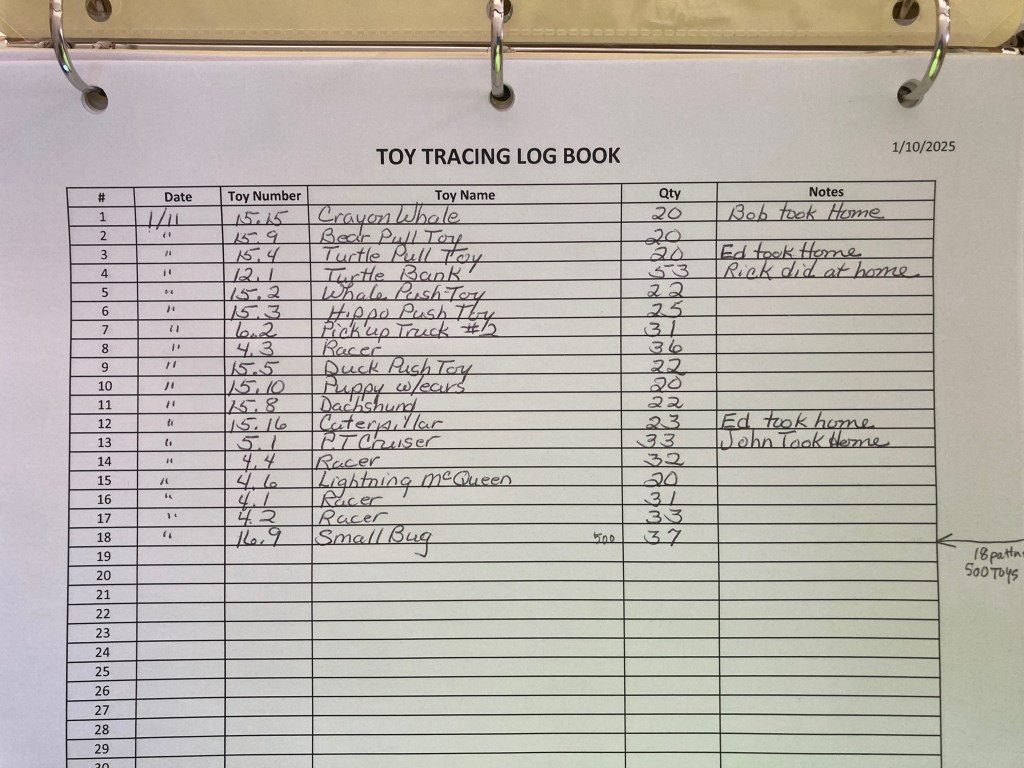 1/10/2025
TOY TRACING LOG BOOK
# Date Toy Number Toy Name Qty Notes
1 1/11 15.15 Crayon Whale 20 Bob took Home
2 " 15.9 Bear Pull Toy 20
3 " 15.4 Turtle Pull Toy 20 Ed took Home
4 " 12.1 Turtle Bank 53 Rick did at home
5 " 15.2 Whale Push Toy 22
6 " 15.3 Hippo Push Toy 25
7 " 6.2 Pick up Truck #2 31
8 " 4.3 Racer 36
9 " 15.5 Duck Push Toy 22
10 " 15.10 Puppy w/ears 20
11 " 15.8 Dachshund 22
12 " 15.16 Caterpillar 23 Ed took home
13 " 5.1 PT Cruiser 33 John Took Home
14 " 4.4 Racer 32
15 " 4.6 Lightning McQueen 20
16 " 4.1 Racer 31
17 " 4.2 Racer 33
18 " 16.9 Small Bug 500 37
18 pattn
500 Toys
19
20
21
22
23
24
25
26
27
28
29
30